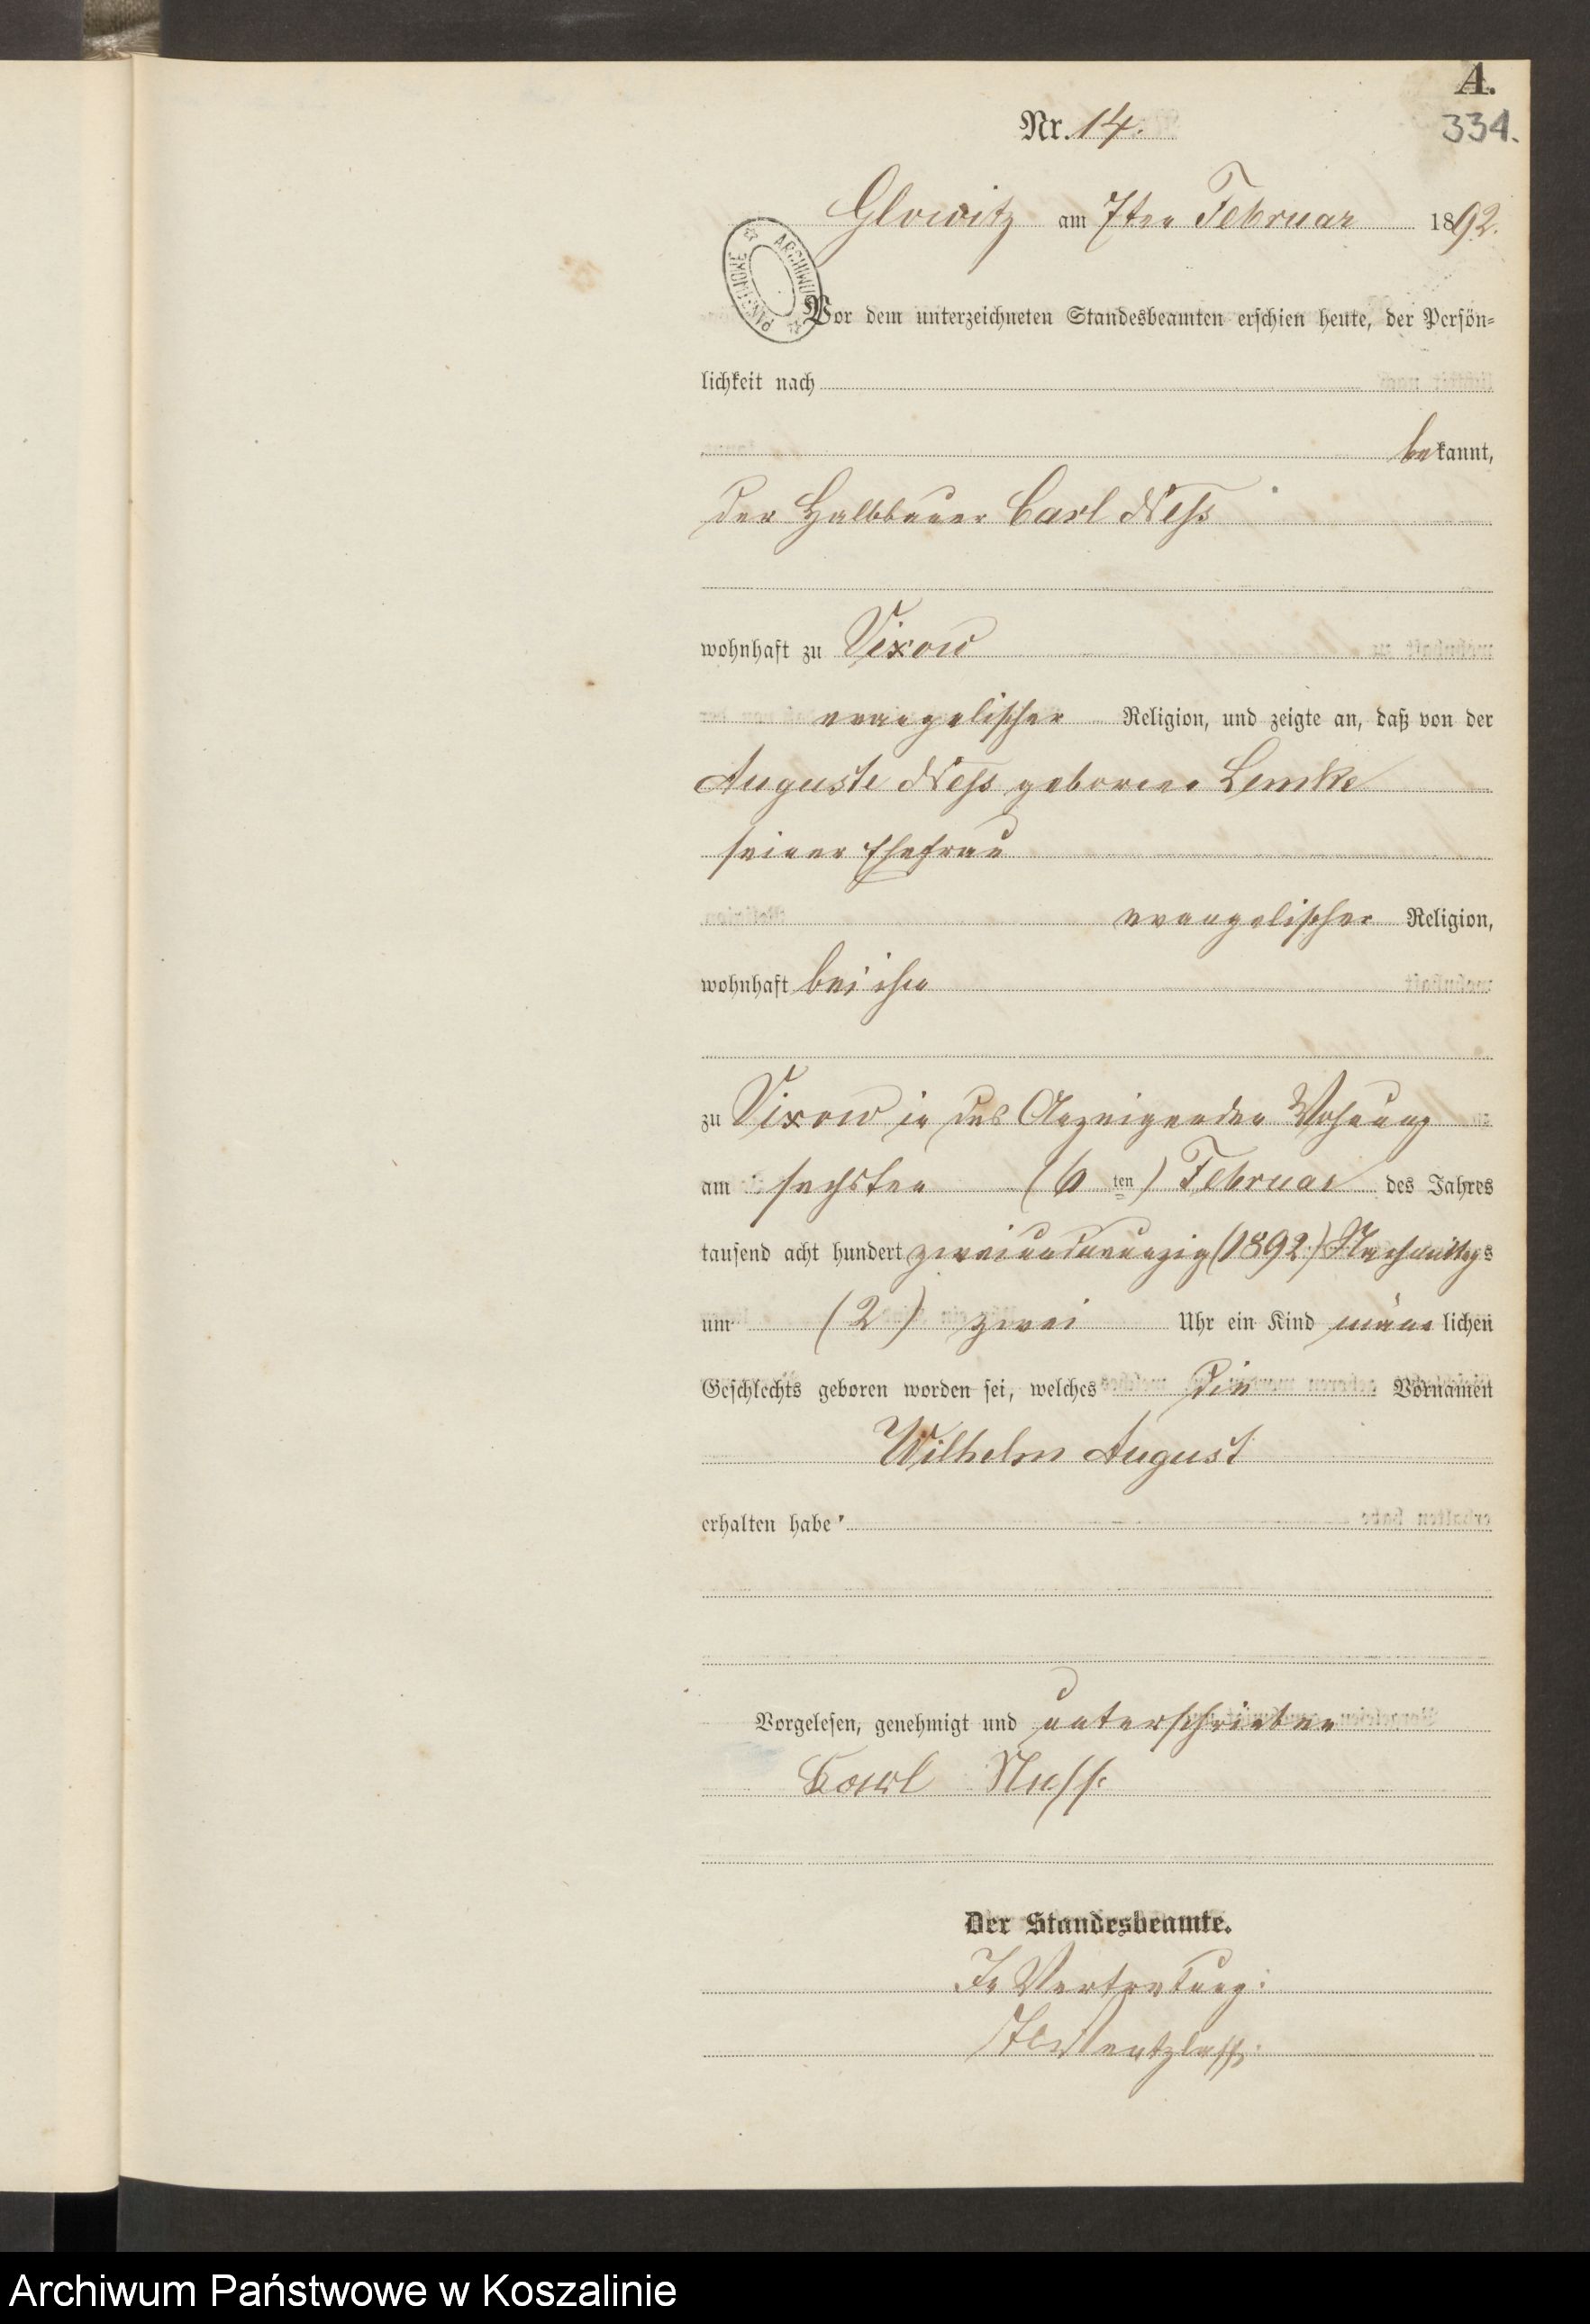 A.
334.
Nr. 14.
Glowitz am 7ten Februar 1892.
ARCHIWUM PAŃSTWOWE
Vor dem unterzeichneten Standesbeamten erschien heute, der Persön-
lichkeit nach
bekannt,
der Halbbauer Carl Neß
wohnhaft zu Vixow
evangelischer Religion, und zeigte an, daß von der
Auguste Neß geborene Lemke
seiner Ehefrau
evangelischer Religion,
wohnhaft bei ihm
zu Vixow in des Anzeigenden Wohnung
am sechsten (6 ten) Februar des Jahres
tausend acht hundert zweiundneunzig (1892) Nachmittags
um (2) zwei Uhr ein Kind männlichen
Geschlechts geboren worden sei, welches die Vornamen
Wilhelm August
erhalten habe
Vorgelesen, genehmigt und unterschrieben
Carl Neß
Der Standesbeamte.
In Vertretung:
Archiwum Państwowe w Koszalinie